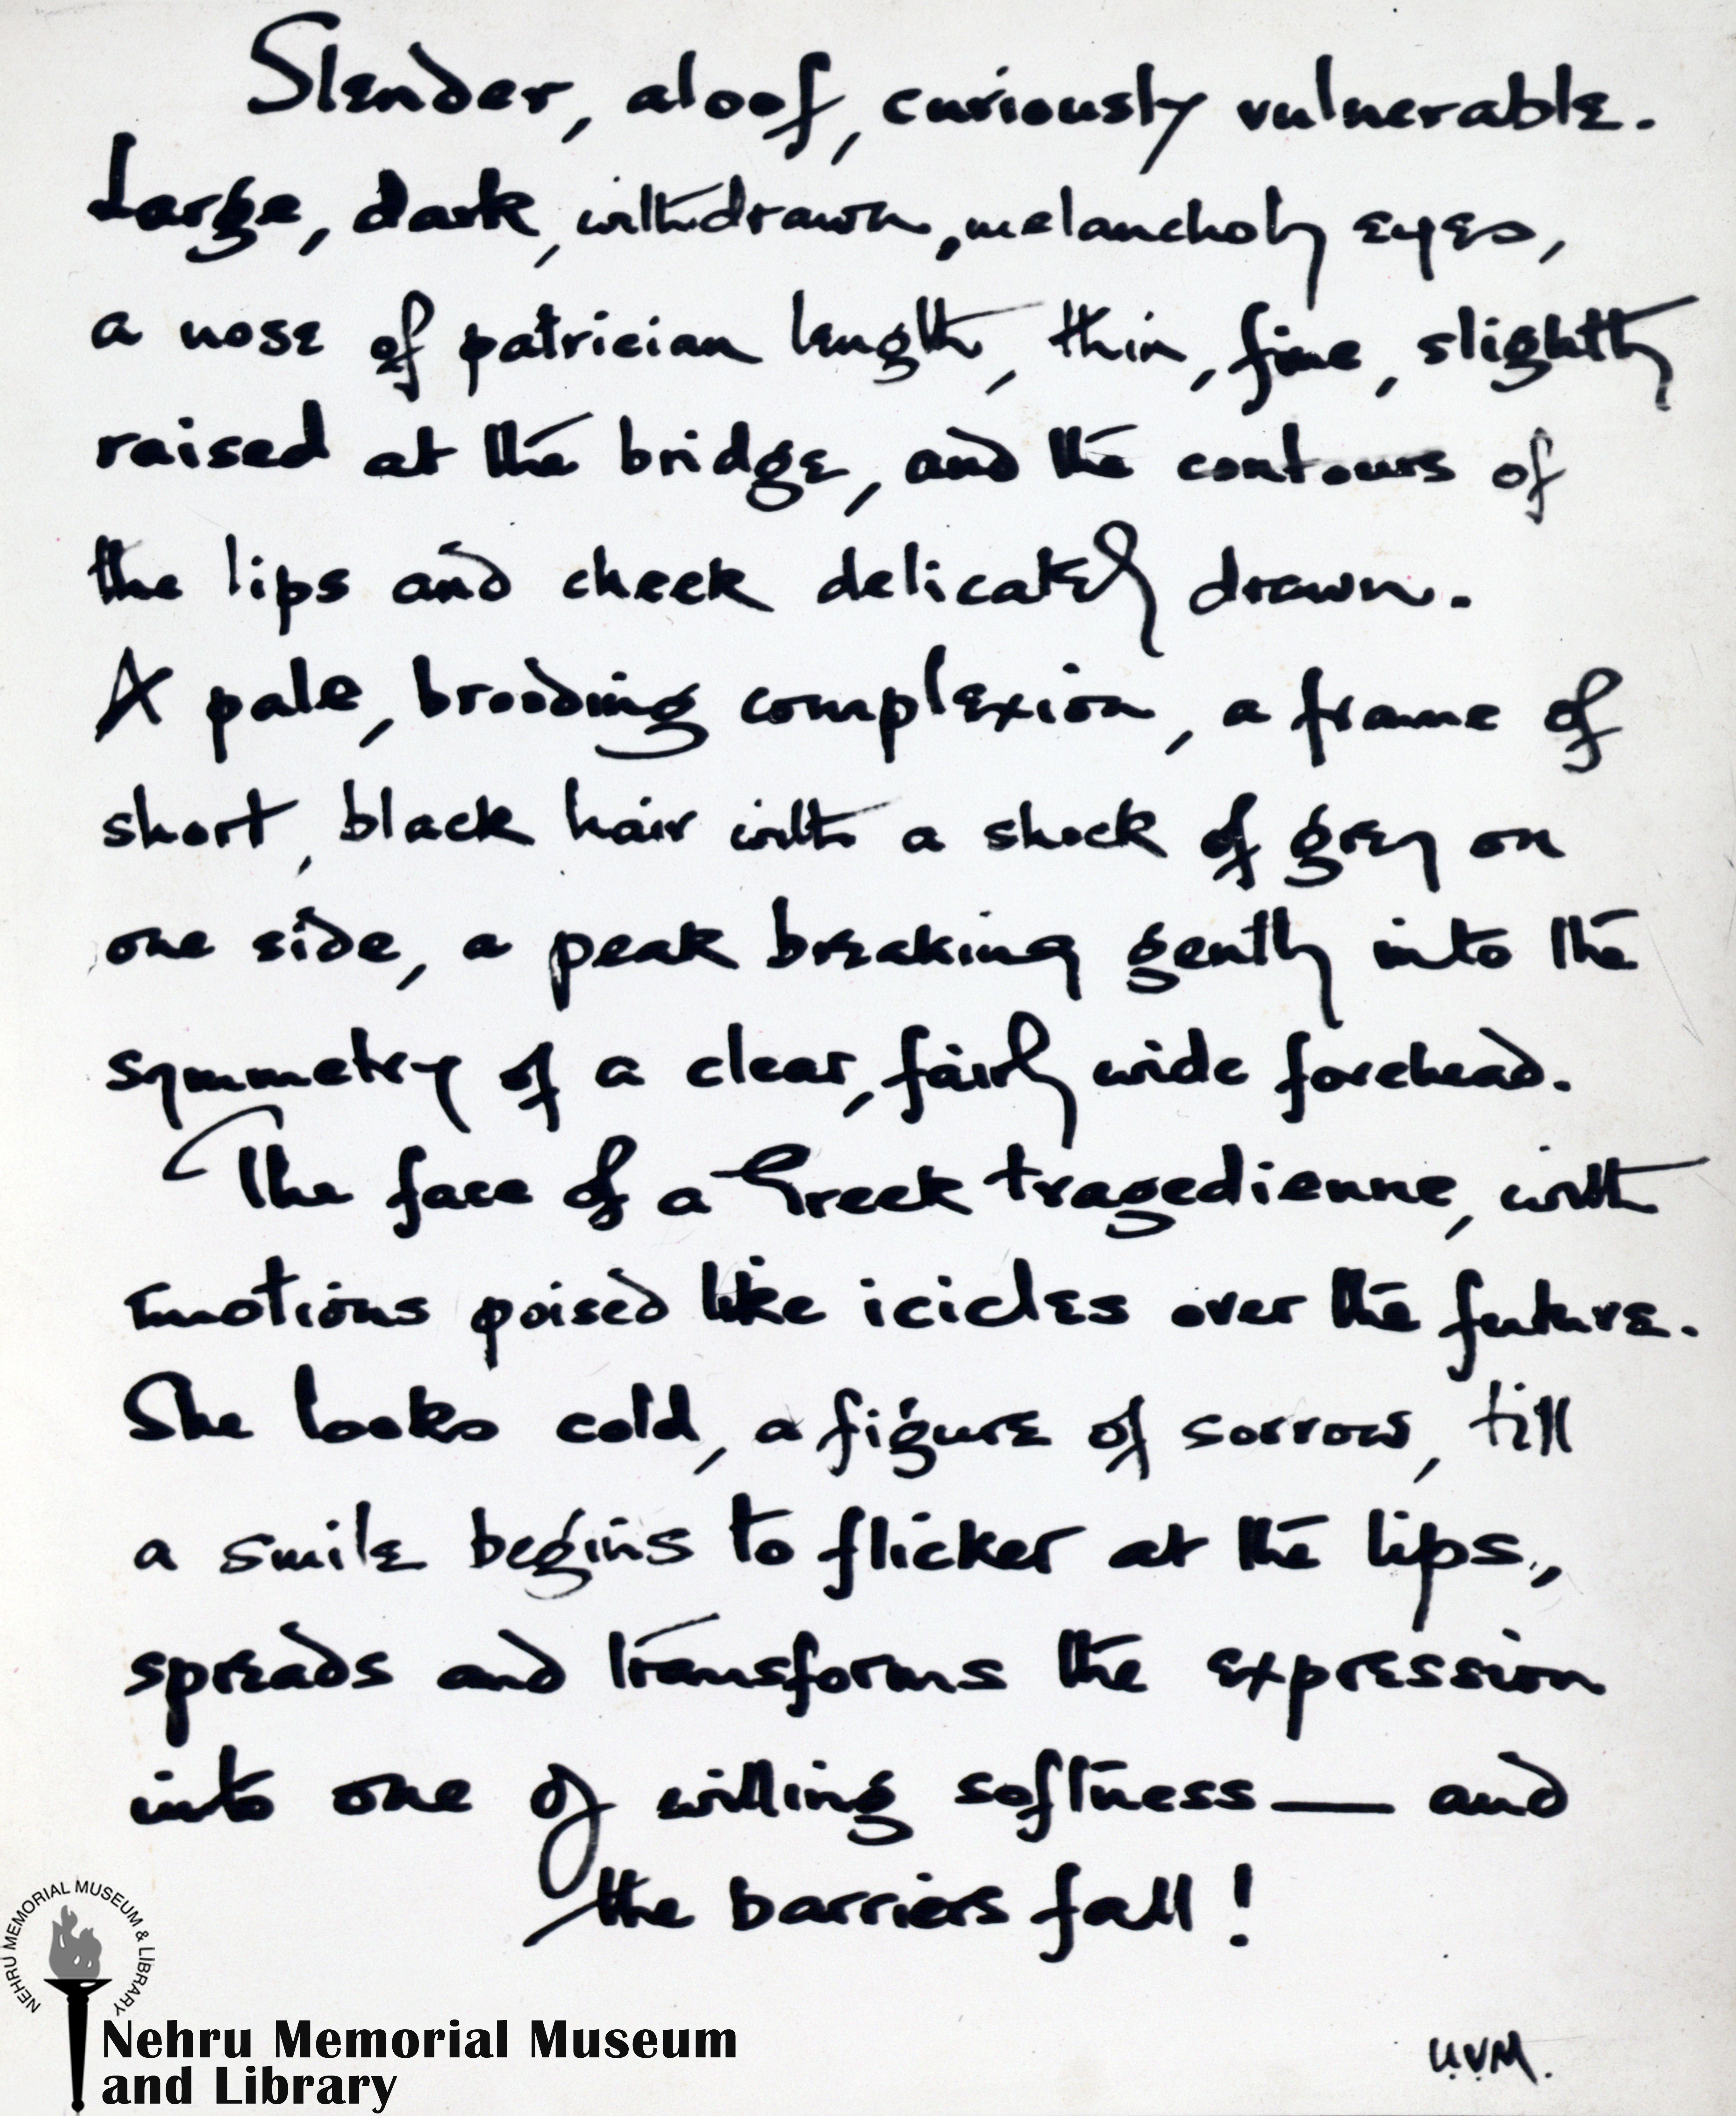 Slender, aloof, curiously vulnerable.
Large, dark, withdrawn, melancholy eyes,
a nose of patrician length, thin, fine, slightly
raised at the bridge, and the contours of
the lips and cheek delicately drawn.
A pale, brooding complexion, a frame of
short, black hair with a shock of grey on
one side, a peak breaking gently into the
symmetry of a clear, fairly wide forehead.
The face of a Greek tragedienne, with
emotions poised like icicles over the future.
She looks cold, a figure of sorrow, till
a smile begins to flicker at the lips,
spreads and transforms the expression
into one of willing softness — and
the barriers fall!
NEHRU MEMORIAL MUSEUM & LIBRARY
Nehru Memorial Museum
and Library
U.V.M.